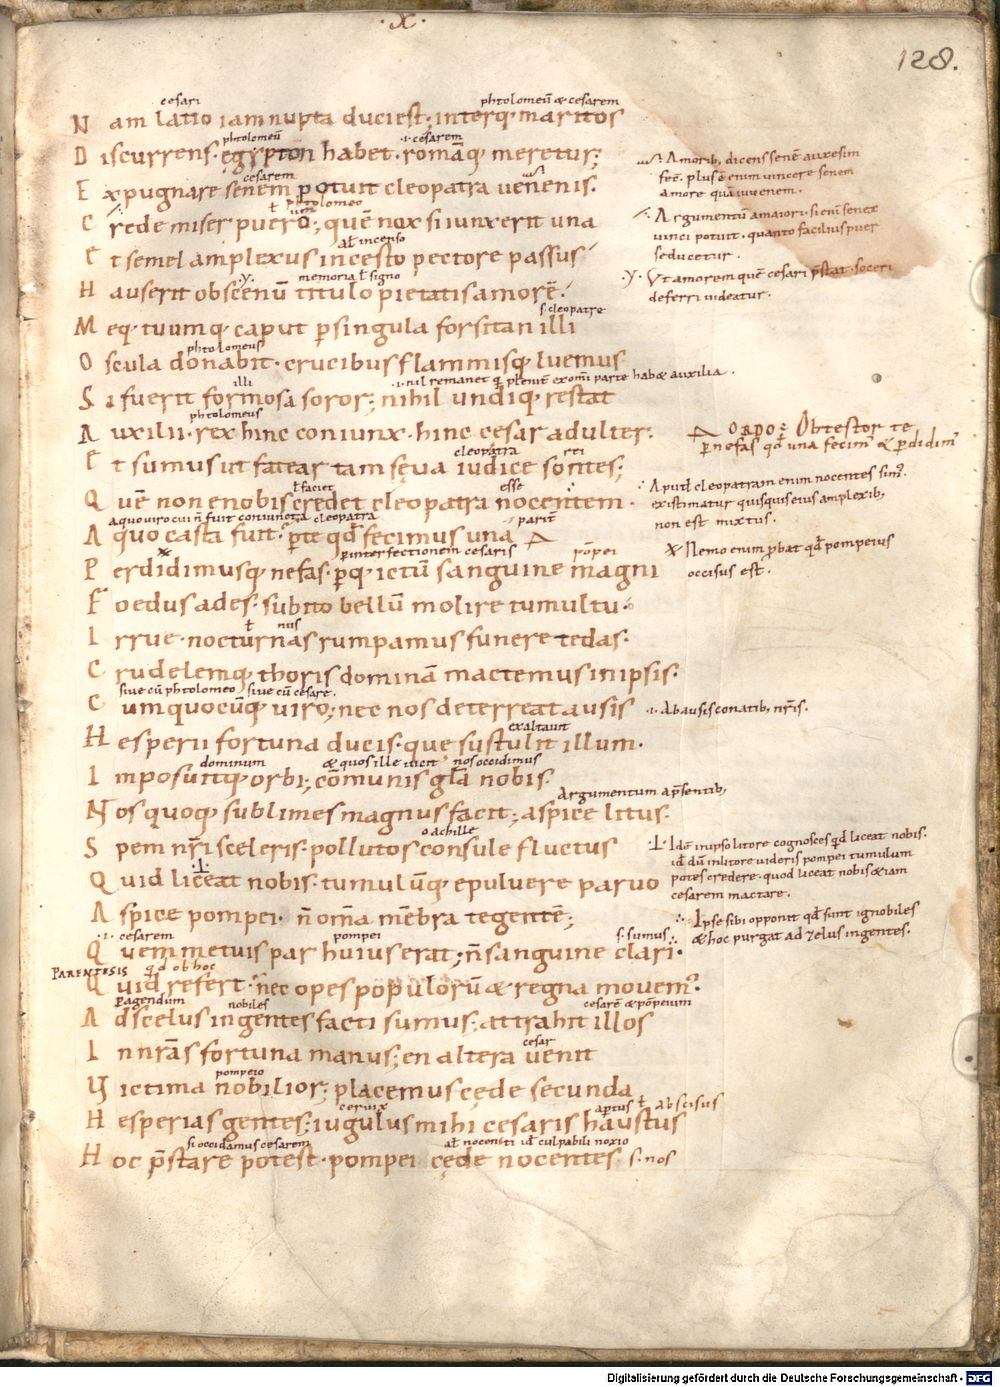 ·X·
128.
cesari phtolomeū & cesarem
N am latio iam nupta duci est; interq; maritos
phtolomeū .i. cesarem
D iscurrens· ęgypton habet· romāq; meretur;
cesarem
E xpugnare senem potuit cleopatra uenenis.
ł phtolomeo
C rede miser puero; quē nox si iunxerit una
al incenso
E t semel amplexus incesto pectore passus
.y. memoria ł signo
H auserit obscenū titulo pietatis amorē.
s. cleopatre
M eq; tuumq; caput p singula forsitan illi
phtolomeus
O scula donabit· crucibus flammisq; luemus
illi .i. nil remanet
S i fuerit formosa soror; nihil undiq; restat
phtolomeus
A uxilii· rex hinc coniunx· hinc cesar adulter:
cleopatra
E t sumus ut fatear tam sęua iudice sontes;
ł faciet esse
Q uē non e nobis credet cleopatra nocentem·
a quo uiro cui n̄ fuit coniuncta cleopatra
A quo casta fuit· pte qđ fecimus una
p interfectionem cesaris pōpei
P erdidimusq; nefas· pq; ictū sanguine magni
F oedus ades· subito bellū molire tumultu·
ł nus
I rrue· nocturnas rumpamus funere tedas:
C rudelemq; thoris dominā mactemus in ipsis·
siue cū phtolomeo siue cū cesare.
C um quocūq; uiro; nec nos deterreat ausis
exaltauit
H esperii fortuna ducis· que sustulit illum·
dominum & quos ille uicit nos occidimus
I mposuitq; orbi; cōmunis gla nobis·
Argumentum a psentib;
N os quoq; sublimes magnus facit; aspice litus·
o achille
S pem nr̄i sceleris· pollutos consule fluctus
Q uid liceat nobis· tumulūq; e puluere paruo
A spice pompei· n̄ om̄a mēbra tegentē;
.i. cesarem pompei s. sumus
Q uem metuis par huius erat; n̄ sanguine clari·
PARENTESIS qđ ob hoc
Q uid refert· nec opes popūlorū & regna mouem;
pagendum nobiles cesarē & pōpeium
A d scelus ingentes facti sumus; attrahit illos
cesar
I n nr̄as fortuna manus; en altera uenit
pompeio
U ictima nobilior; placemus cęde secunda
ceruix aptus ł abscisus
H esperias gentes; iugulus mihi cesaris haustus
si occidamus cesarem al nocenti id culpabili noxio
H oc p̄stare potest· pompei cęde nocentes s. nos
Amorib; dicens senē auxesim
feē. plus ē enim uincere senem
amore quā iuuenem.
Argumentū a maiori· si eni senex
uinci potuit· quanto facilius puer
seducetur.
.y. Vt amorem quē cesari p̄stat· soceri
deferri uideatur.
ORDO: Obtestor te
p nefas qđ una fecim; & pdidim;
Aput cleopatram enim nocentes sim;
existimatur quisquis eius amplexib;
non est mixtus.
Nemo enim pbat qđ pompeius
occisus est.
.i. Ab ausis conatib; nr̄is.
Idē in ipso litore cognosces qđ liceat nobis.
id dū in litore uideris pompei tumulum
potes credere· quod liceat nobis & iam
cesarem mactare.
Ipse sibi opponit qđ sunt ignobiles
& hoc purgat ad zelus ingentes.
Digitalisierung gefördert durch die Deutsche Forschungsgemeinschaft · DFG